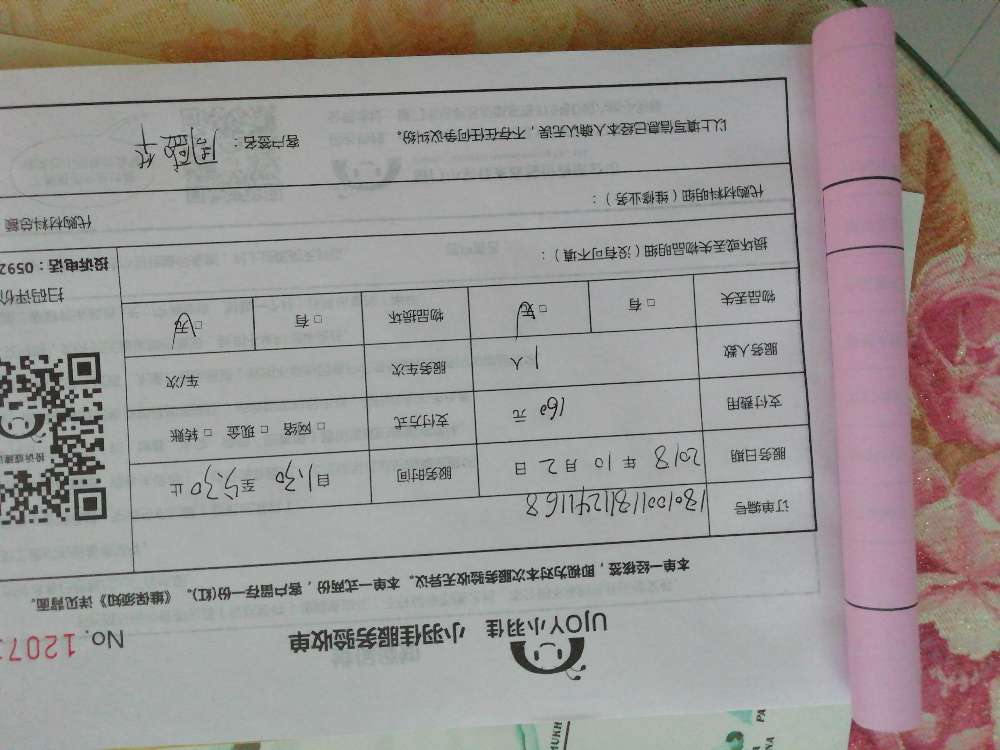 UJOY小羽佳 小羽佳服务验收单 No. 1207
本单一经核签，即视为对本次服务验收无异议。本单一式两份，客户留存一份(红)。《维保须知》详见背面。
订单编号
服务日期 2018 年 10 月 2 日 服务时间 自 1:30 至 5:30 止
支付费用 160 元 支付方式 □ 网络 □ 现金 □ 转账
服务人数 1 人 服务车次 车/次
物品丢失 □ 有 □ 无 物品损坏 □ 有 □ 无
损坏或丢失物品明细（没有可不填）：
代购材料明细（维修业务）： 代购材料总额
以上填写信息已经本人确认无误，不存在任何争议纠纷。 客户签名：
投诉或建议
扫码评价
投诉电话：0592